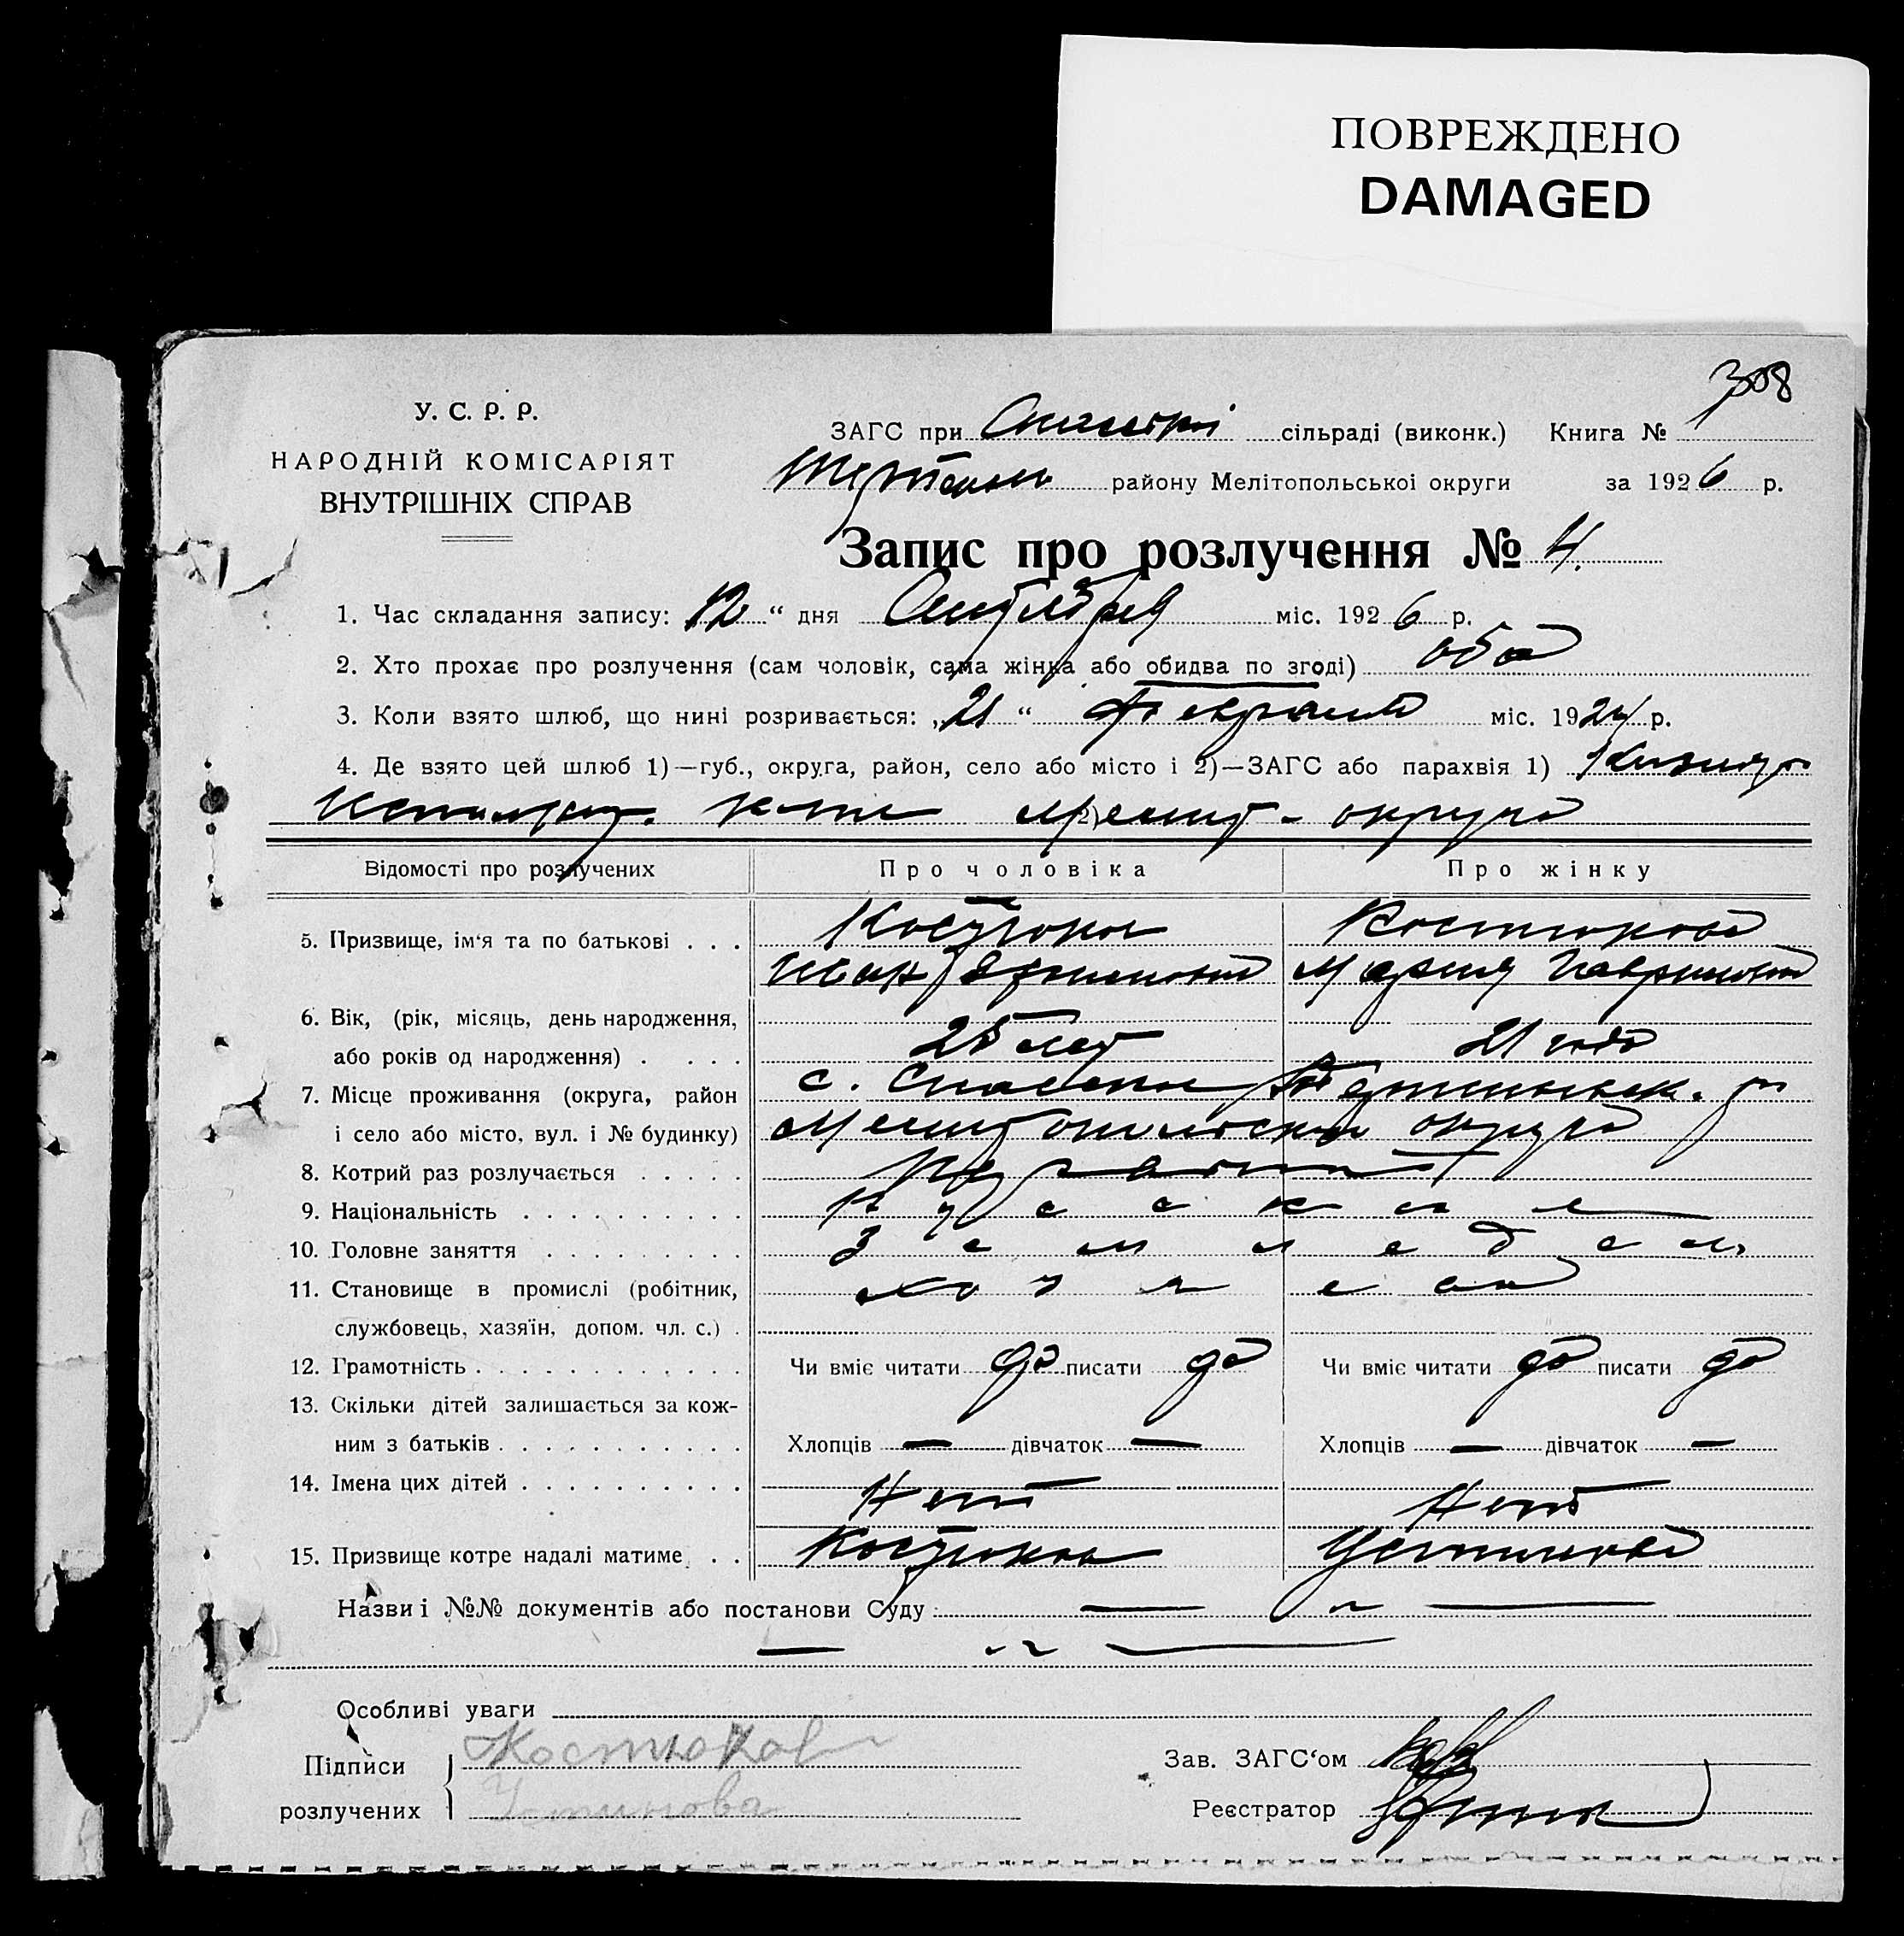 ПОВРЕЖДЕНО
DAMAGED
308
У. С. Р. Р.
НАРОДНІЙ КОМІСАРІЯТ
ВНУТРІШНІХ СПРАВ
ЗАГС при сільраді (виконк.) Книга №
району Мелітопольськоі округи за 1926 р.
Запис про розлучення № 4.
1. Час складання запису: 12 " дня міс. 1926 р.
2. Хто прохає про розлучення (сам чоловік, сама жінка або обидва по згоді) оба
3. Коли взято шлюб, що нині розривається: „21 " Февраля міс. 1924 р.
4. Де взято цей шлюб 1)—губ., округа, район, село або місто і 2)—ЗАГС або парахвія 1)
2) округа
Відомості про розлучених Про чоловіка Про жінку
5. Призвище, ім'я та по батькові . . . Костюков Костюкова
Иван Мария Гавриловна
6. Вік, (рік, місяць, день народження,
або років од народження) . . . . 25 лет 21 года
7. Місце проживання (округа, район с.
і село або місто, вул. і № будинку) Мелитопольской округа
8. Котрий раз розлучається . . . . .
9. Національність . . . . . . . . . . Русские
10. Головне заняття . . . . . . . . . Земледел.
11. Становище в промислі (робітник, хозяева
службовець, хазяїн, допом. чл. с.) .
12. Грамотність . . . . . . . . . . . . Чи вміє читати да писати да Чи вміє читати да писати да
13. Скільки дітей залишається за кож-
ним з батьків . . . . . . . . . . . Хлопців — дівчаток — Хлопців — дівчаток —
14. Імена цих дітей . . . . . . . . . .
Нет Нет
15. Призвище котре надалі матиме . . Костюков Устинова
Назви і №№ документів або постанови Суду: — " —
— " —
Особливі уваги
Підписи Костюков Зав. ЗАГС'ом
розлучених Устинова Реєстратор